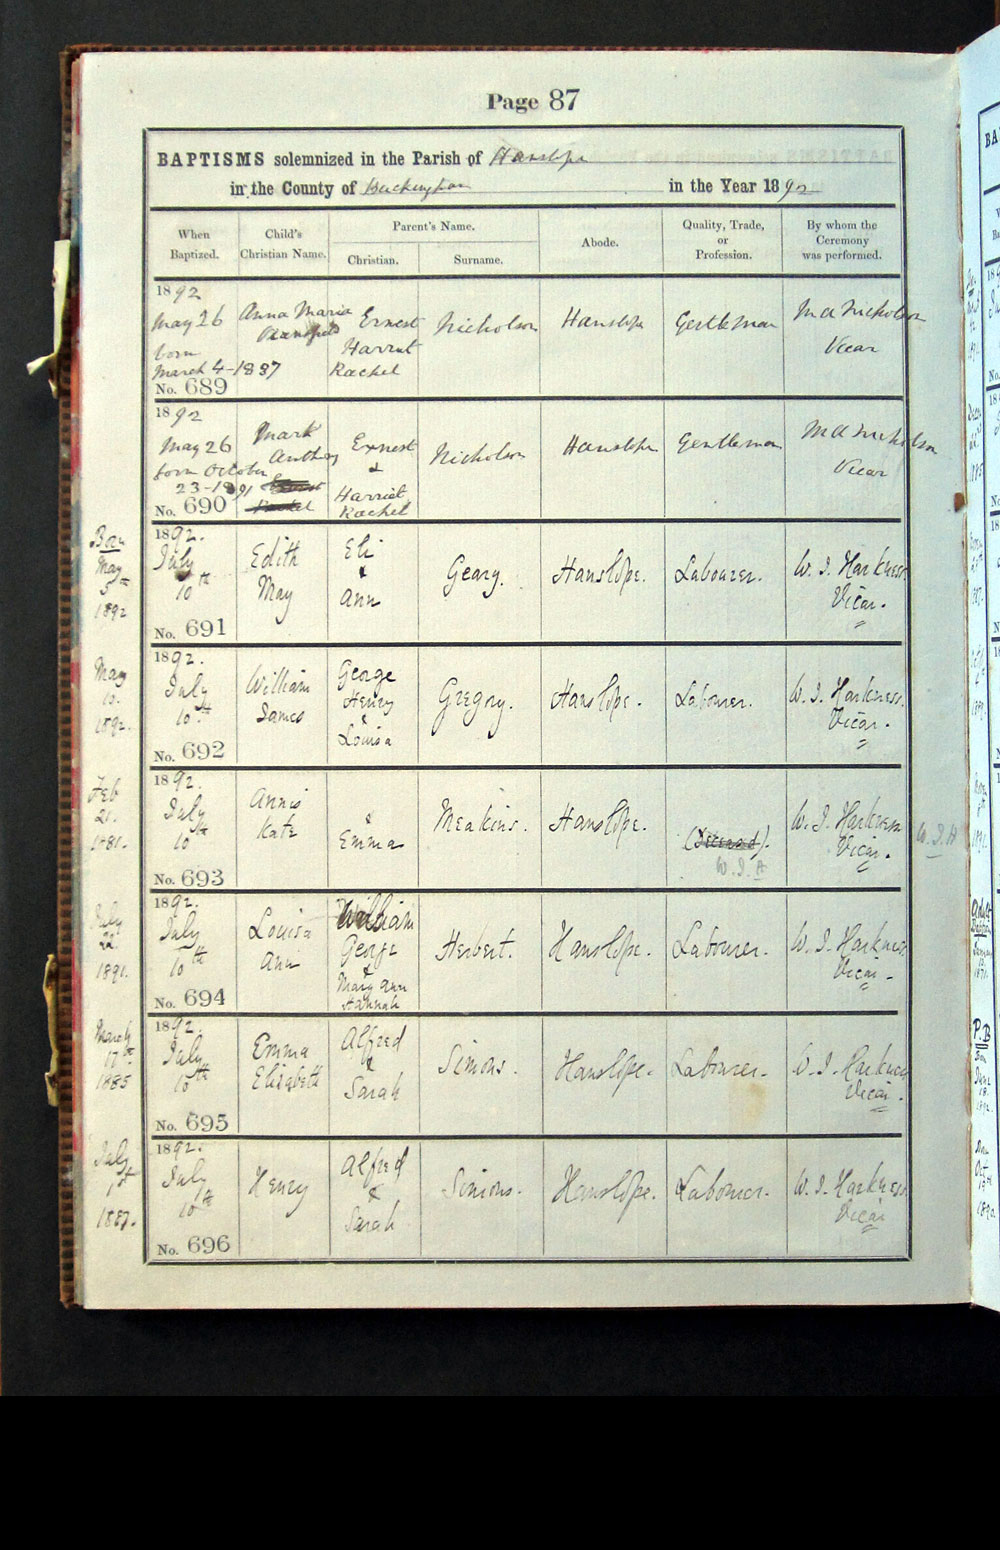 Page 87
BAPTISMS solemnized in the Parish of Hanslope
in the County of Buckingham in the Year 1892
When Baptized.
Child's Christian Name.
Parent's Name.
Christian.
Surname.
Abode.
Quality, Trade, or Profession.
By whom the Ceremony was performed.
1892
May 26
born
March 4-1887
No. 689
Anna Maria
Ernest
Harriet
Rachel
Nicholson
Hanslope
Gentleman
M A Nicholson
Vicar
1892
May 26
born October
23-1891
No. 690
Mark
Anthony
Ernest
&
Harriet
Rachel
Nicholson
Hanslope
Gentleman
M A Nicholson
Vicar
Born
May
5th
1892
1892.
July
10th
No. 691
Edith
May
Eli
&
Ann
Geary.
Hanslope.
Labourer.
W. J. Harkness
Vicar.
May
10.
1892.
1892.
July
10th
No. 692
William
James
George
Henry
&
Louisa
Gregory.
Hanslope.
Labourer.
W. J. Harkness.
Vicar.
Feb
21.
1881.
1892.
July
10th
No. 693
Annie
Kate
&
Emma
Meakins.
Hanslope.
(Deceased).
W. J. H
W. J. Harkness
Vicar.
W. J. H
July
22.
1891.
1892.
July
10th
No. 694
Louisa
Ann
William
George
&
Mary Ann
Hannah
Herbert.
Hanslope.
Labourer.
W. J. Harkness
Vicar.
March
17th
1885
1892.
July
10th
No. 695
Emma
Elizabeth
Alfred
&
Sarah
Simons.
Hanslope.
Labourer.
W. J. Harkness
Vicar.
July
1st
1887.
1892.
July
10th
No. 696
Henry
Alfred
&
Sarah
Simons.
Hanslope.
Labourer.
W. J. Harkness
Vicar